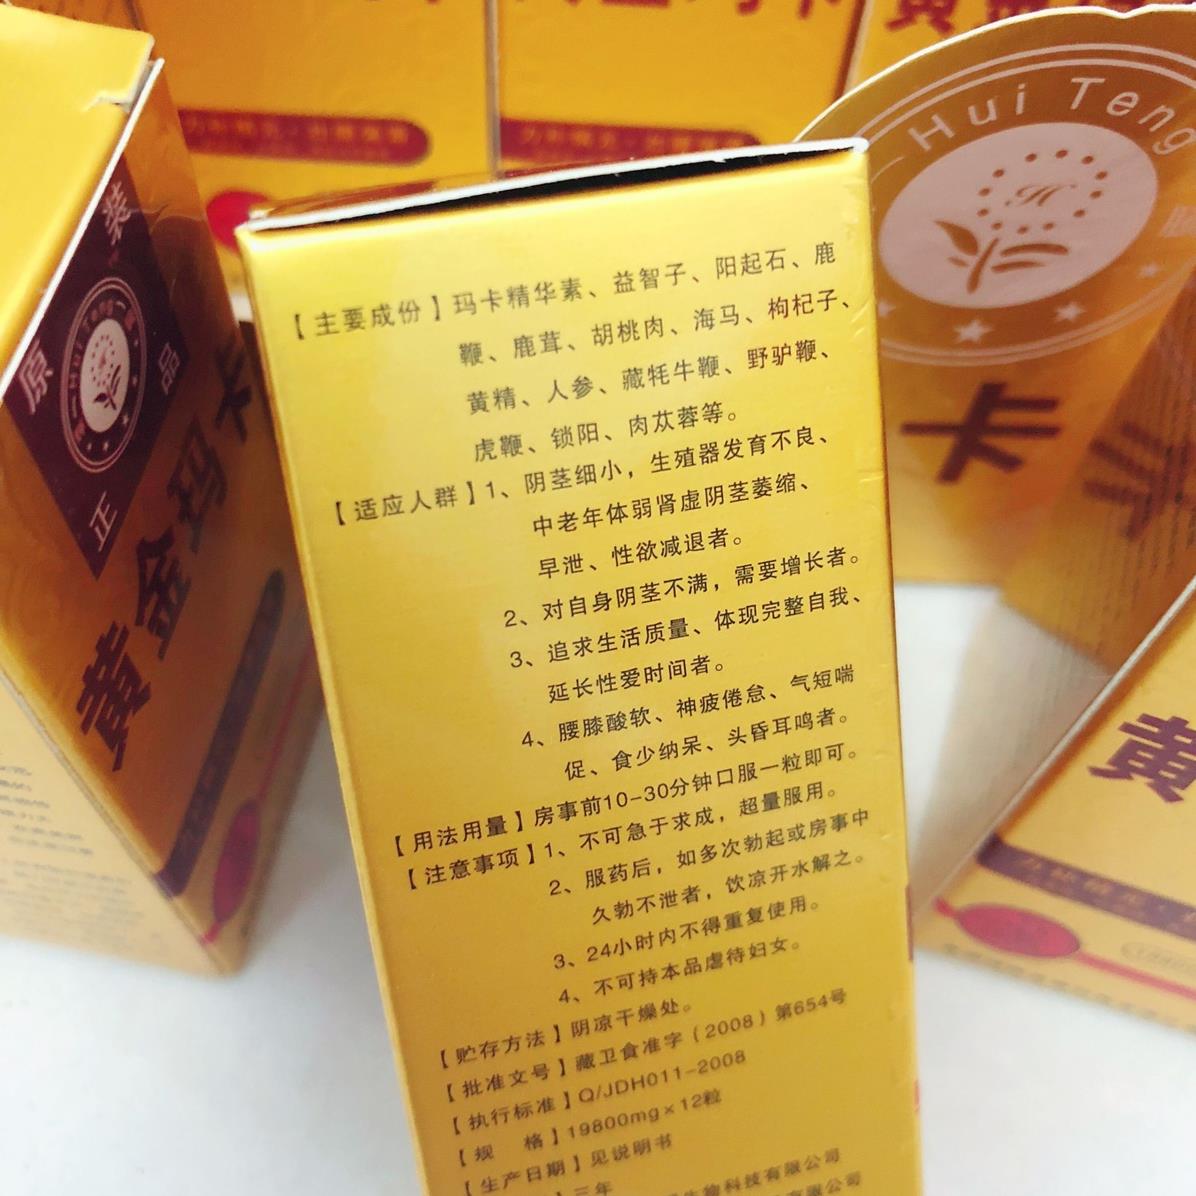 Hui Teng
原装正品
黄金玛卡
卡
黄
【主要成份】玛卡精华素、益智子、阳起石、鹿
鞭、鹿茸、胡桃肉、海马、枸杞子、
黄精、人参、藏牦牛鞭、野驴鞭、
虎鞭、锁阳、肉苁蓉等。
【适应人群】1、阴茎细小，生殖器发育不良、
中老年体弱肾虚阴茎萎缩、
早泄、性欲减退者。
2、对自身阴茎不满，需要增长者。
3、追求生活质量、体现完整自我、
延长性爱时间者。
4、腰膝酸软、神疲倦怠、气短喘
促、食少纳呆、头昏耳鸣者。
【用法用量】房事前10-30分钟口服一粒即可。
【注意事项】1、不可急于求成，超量服用。
2、服药后，如多次勃起或房事中
久勃不泄者，饮凉开水解之。
3、24小时内不得重复使用。
4、不可持本品虐待妇女。
【贮存方法】阴凉干燥处。
【批准文号】藏卫食准字（2008）第654号
【执行标准】Q/JDH011-2008
【规 格】19800mg×12粒
【生产日期】见说明书
三年
生物科技有限公司
有限公司